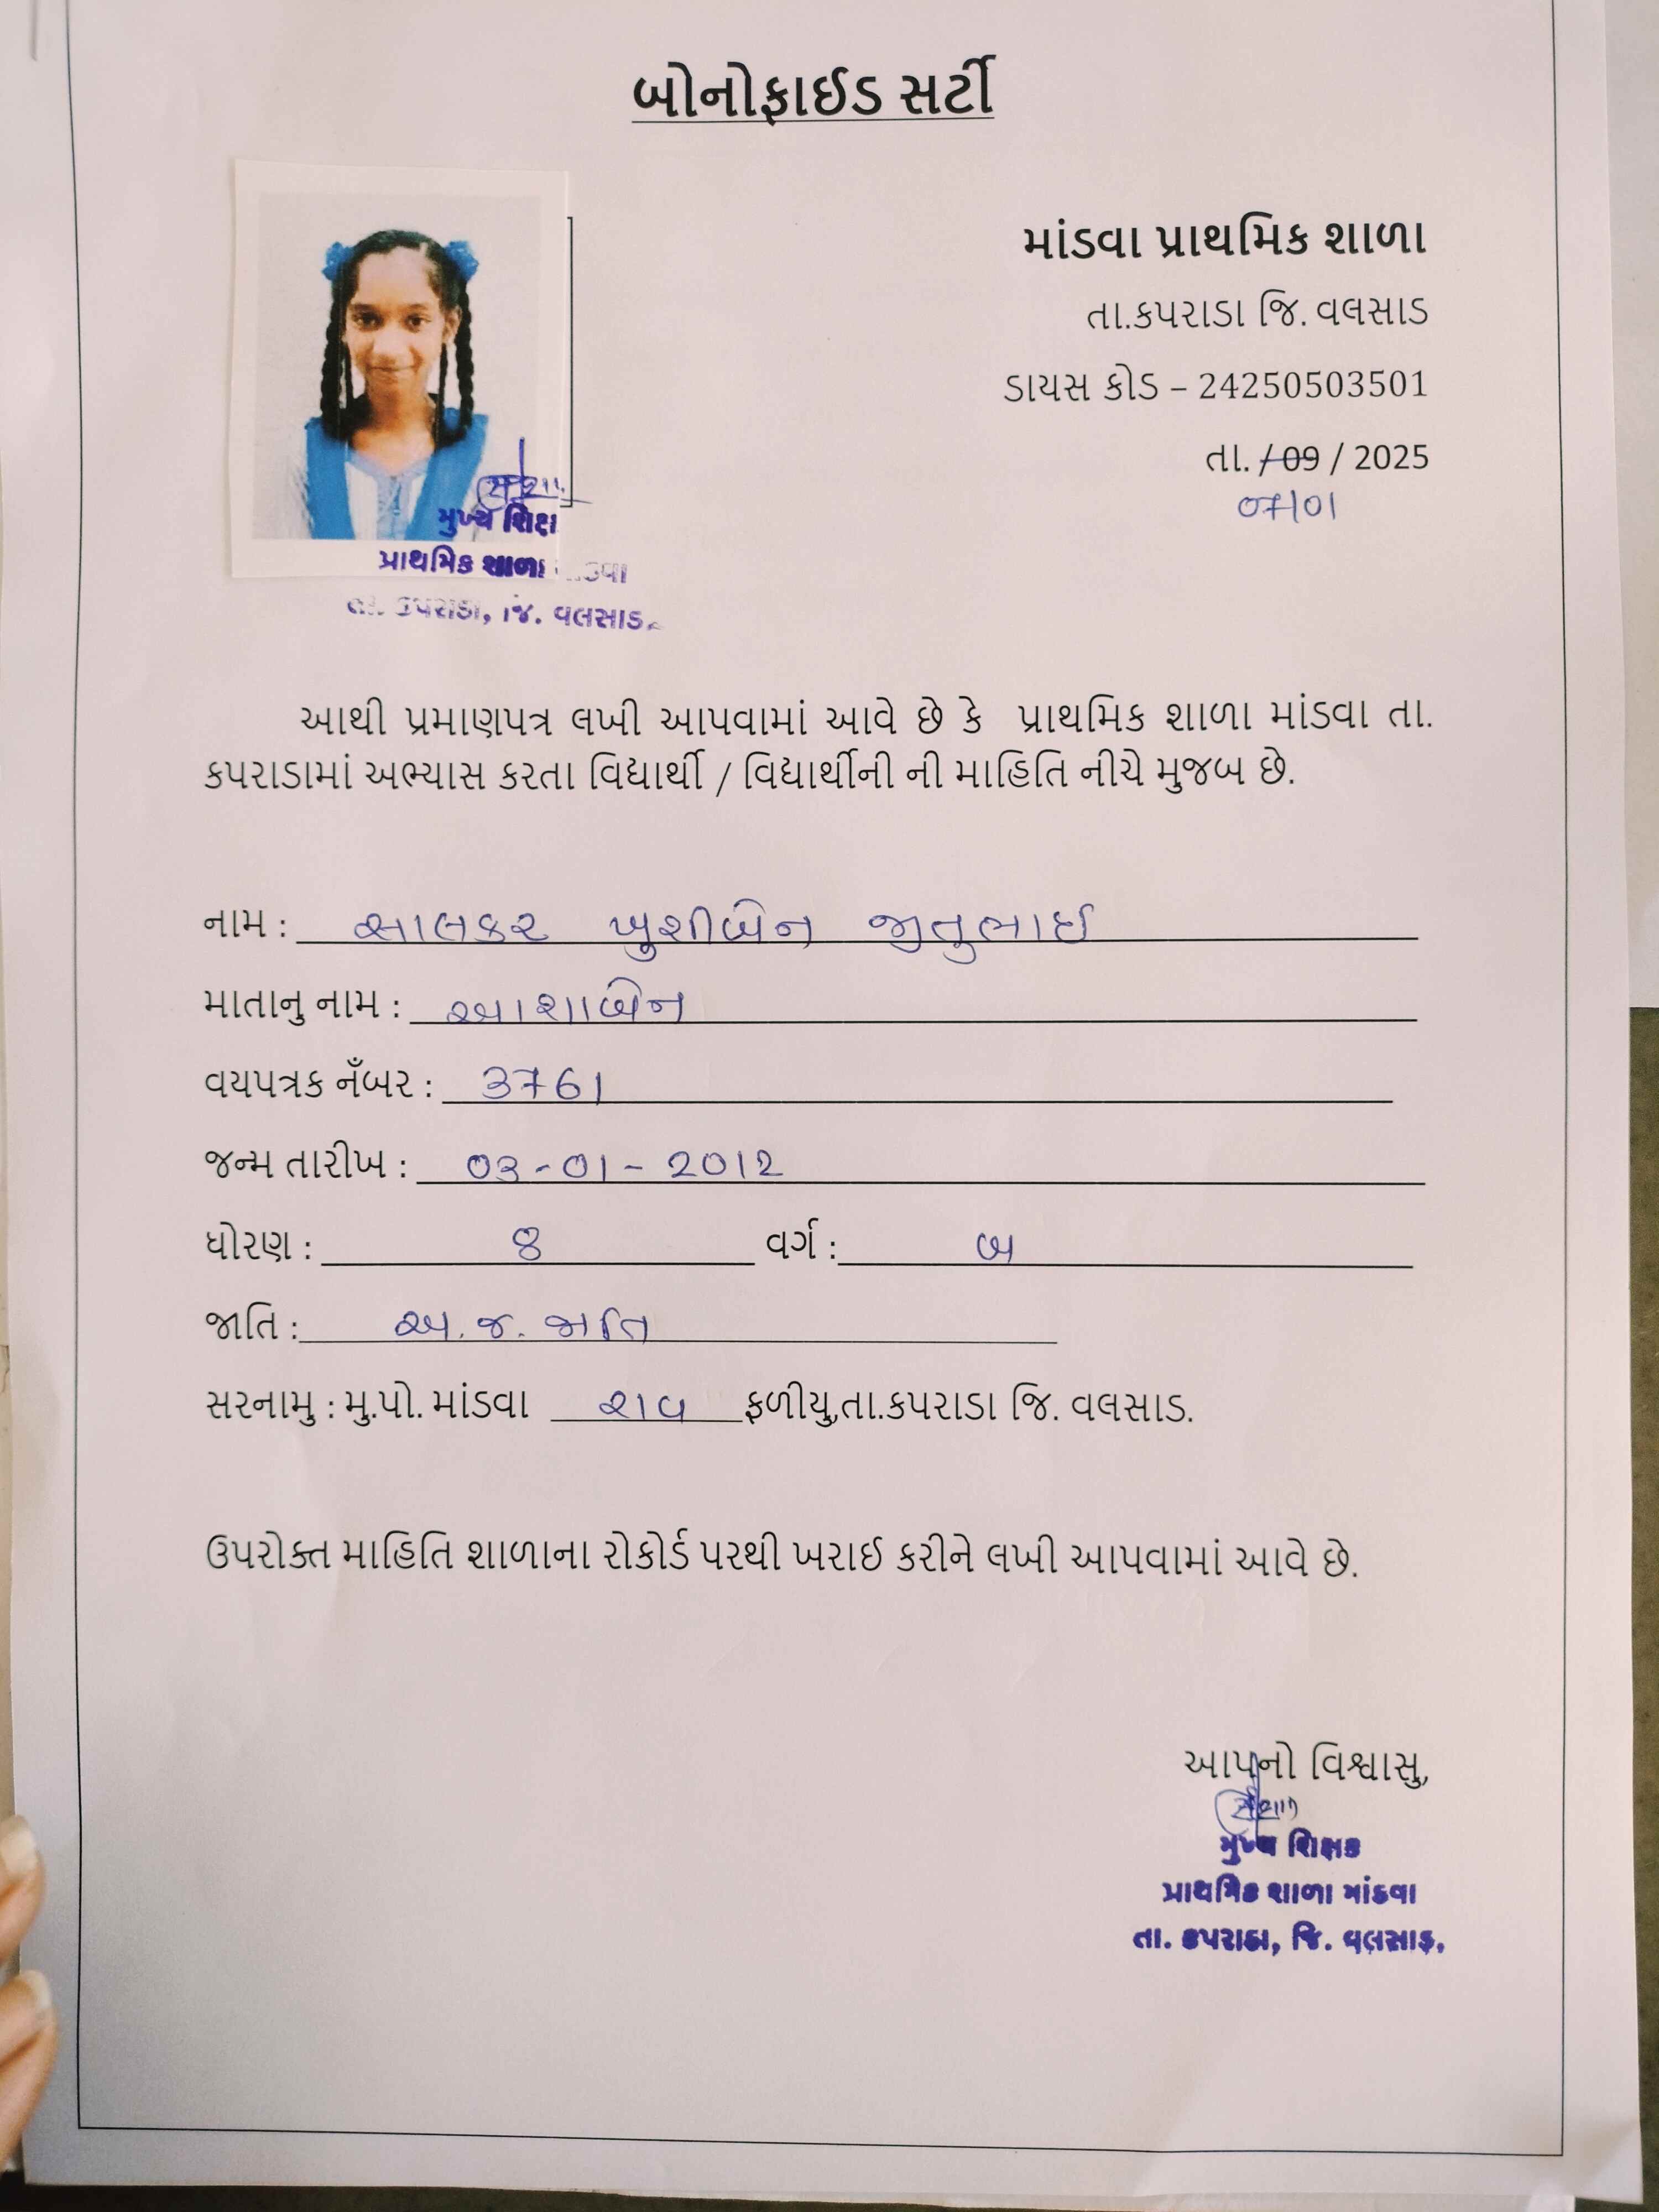 બોનોફાઈડ સર્ટી
માંડવા પ્રાથમિક શાળા
તા.કપરાડા જિ. વલસાડ
ડાયસ કોડ – 24250503501
તા. /09 / 2025
07/01
મુખ્ય શિક્ષ
પ્રાથમિક શાળા
તા. કપરાડા, જિ. વલસાડ.
આથી પ્રમાણપત્ર લખી આપવામાં આવે છે કે પ્રાથમિક શાળા માંડવા તા.
કપરાડામાં અભ્યાસ કરતા વિદ્યાર્થી / વિદ્યાર્થીની ની માહિતિ નીચે મુજબ છે.
નામ : સાલકર ખુશીબેન જીતુભાઈ
માતાનુ નામ : આશાબેન
વયપત્રક નઁબર : 3761
જન્મ તારીખ : 03-01-2012
ધોરણ : 8 વર્ગ : બ
જાતિ : અ.જ. જાતિ
સરનામુ : મુ.પો. માંડવા ફળીયુ,તા.કપરાડા જિ. વલસાડ.
ઉપરોક્ત માહિતિ શાળાના રોકોર્ડ પરથી ખરાઈ કરીને લખી આપવામાં આવે છે.
આપનો વિશ્વાસુ,
મુખ્ય શિક્ષક
પ્રાથમિક શાળા માંડવા
તા. કપરાડા, જિ. વલસાડ.